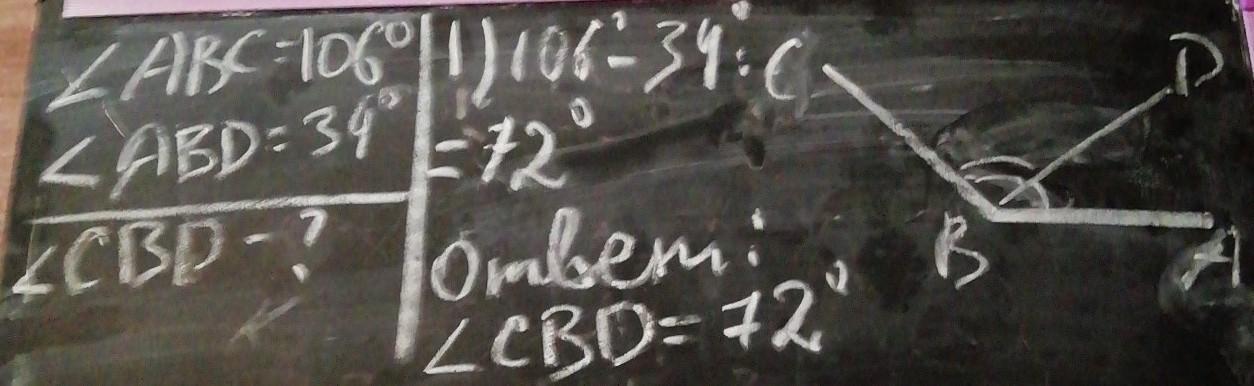 ∠ABC=106°
∠ABD=34°
∠CBD-?
1) 106°-34°:
=72°
Ответ:
∠CBD=72°
C
D
B
A